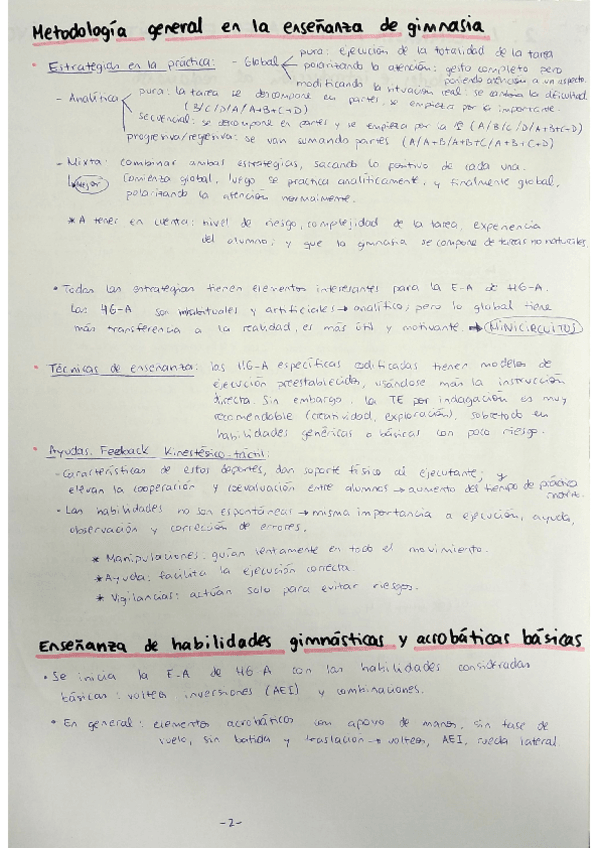 Metodología general en la enseñanza de gimnasia
• Estrategias en la práctica: - Global
pura: ejecución de la totalidad de la tarea
polarizando la atención: gesto completo pero
poniendo atención a un aspecto.
modificando la situación real: se cambia la dificultad
- Analítica
pura: la tarea se descompone en partes, se empieza por la importante
(B/C/D/A/A+B+C+D)
secuencial: se descompone en partes y se empieza por la 1ª (A/B/C/D/A+B+C+D)
progresiva/regresiva: se van sumando partes (A/A+B/A+B+C/A+B+C+D)
- Mixta: combinar ambas estrategias, sacando lo positivo de cada una.
Mejor Comienza global, luego se practica analíticamente, y finalmente global,
polarizando la atención normalmente.
* A tener en cuenta: nivel de riesgo, complejidad de la tarea, experiencia
del alumno, y que la gimnasia se compone de tareas no naturales
• Todas las estrategias tienen elementos interesantes para la E-A de HG-A.
Las HG-A son inhabituales y artificiales → analítico; pero lo global tiene
más transferencia a la realidad, es más útil y motivante. → MINICIRCUITOS
• Técnicas de enseñanza: las HG-A específicas codificadas tienen modelos de
ejecución preestablecidos, usándose más la instrucción
directa. Sin embargo, la TE por indagación es muy
recomendable (creatividad, exploración), sobretodo en
habilidades genéricas o básicas con poco riesgo.
• Ayudas. Feedback Kinestésico-táctil:
- Característicos de estos deportes, dan soporte físico al ejecutante, y
elevan la cooperación y coevaluación entre alumnos → aumento del tiempo de práctica
motriz.
- Las habilidades no son espontáneas → misma importancia a ejecución, ayuda,
observación y corrección de errores.
* Manipulaciones: guían lentamente en todo el movimiento.
* Ayuda: facilita la ejecución correcta.
* Vigilancias: actúan solo para evitar riesgos.
Enseñanza de habilidades gimnásticas y acrobáticas básicas
• Se inicia la E-A de HG-A con las habilidades consideradas
básicas: volteos, inversiones (AEI) y combinaciones.
• En general: elementos acrobáticos con apoyo de manos, sin fase de
vuelo, sin batida y traslación → volteos, AEI, rueda lateral.
-2-